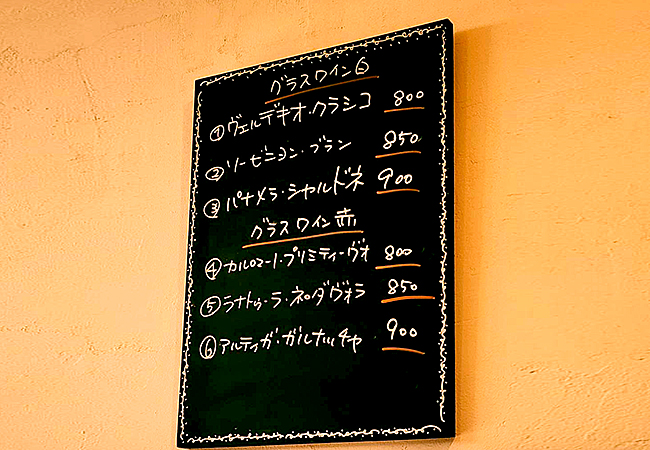 グラスワイン白
① ヴェルデキオ・クラシコ 800
② ソーゼニヨン・ブラン 850
③ パナメラ・シャルドネ 900
グラスワイン赤
④ カルロマーノ・プリミティーヴォ 800
⑤ ラナトゥーラ・ネロダヴォラ 850
⑥ アルティガ・ガルナッチャ 900